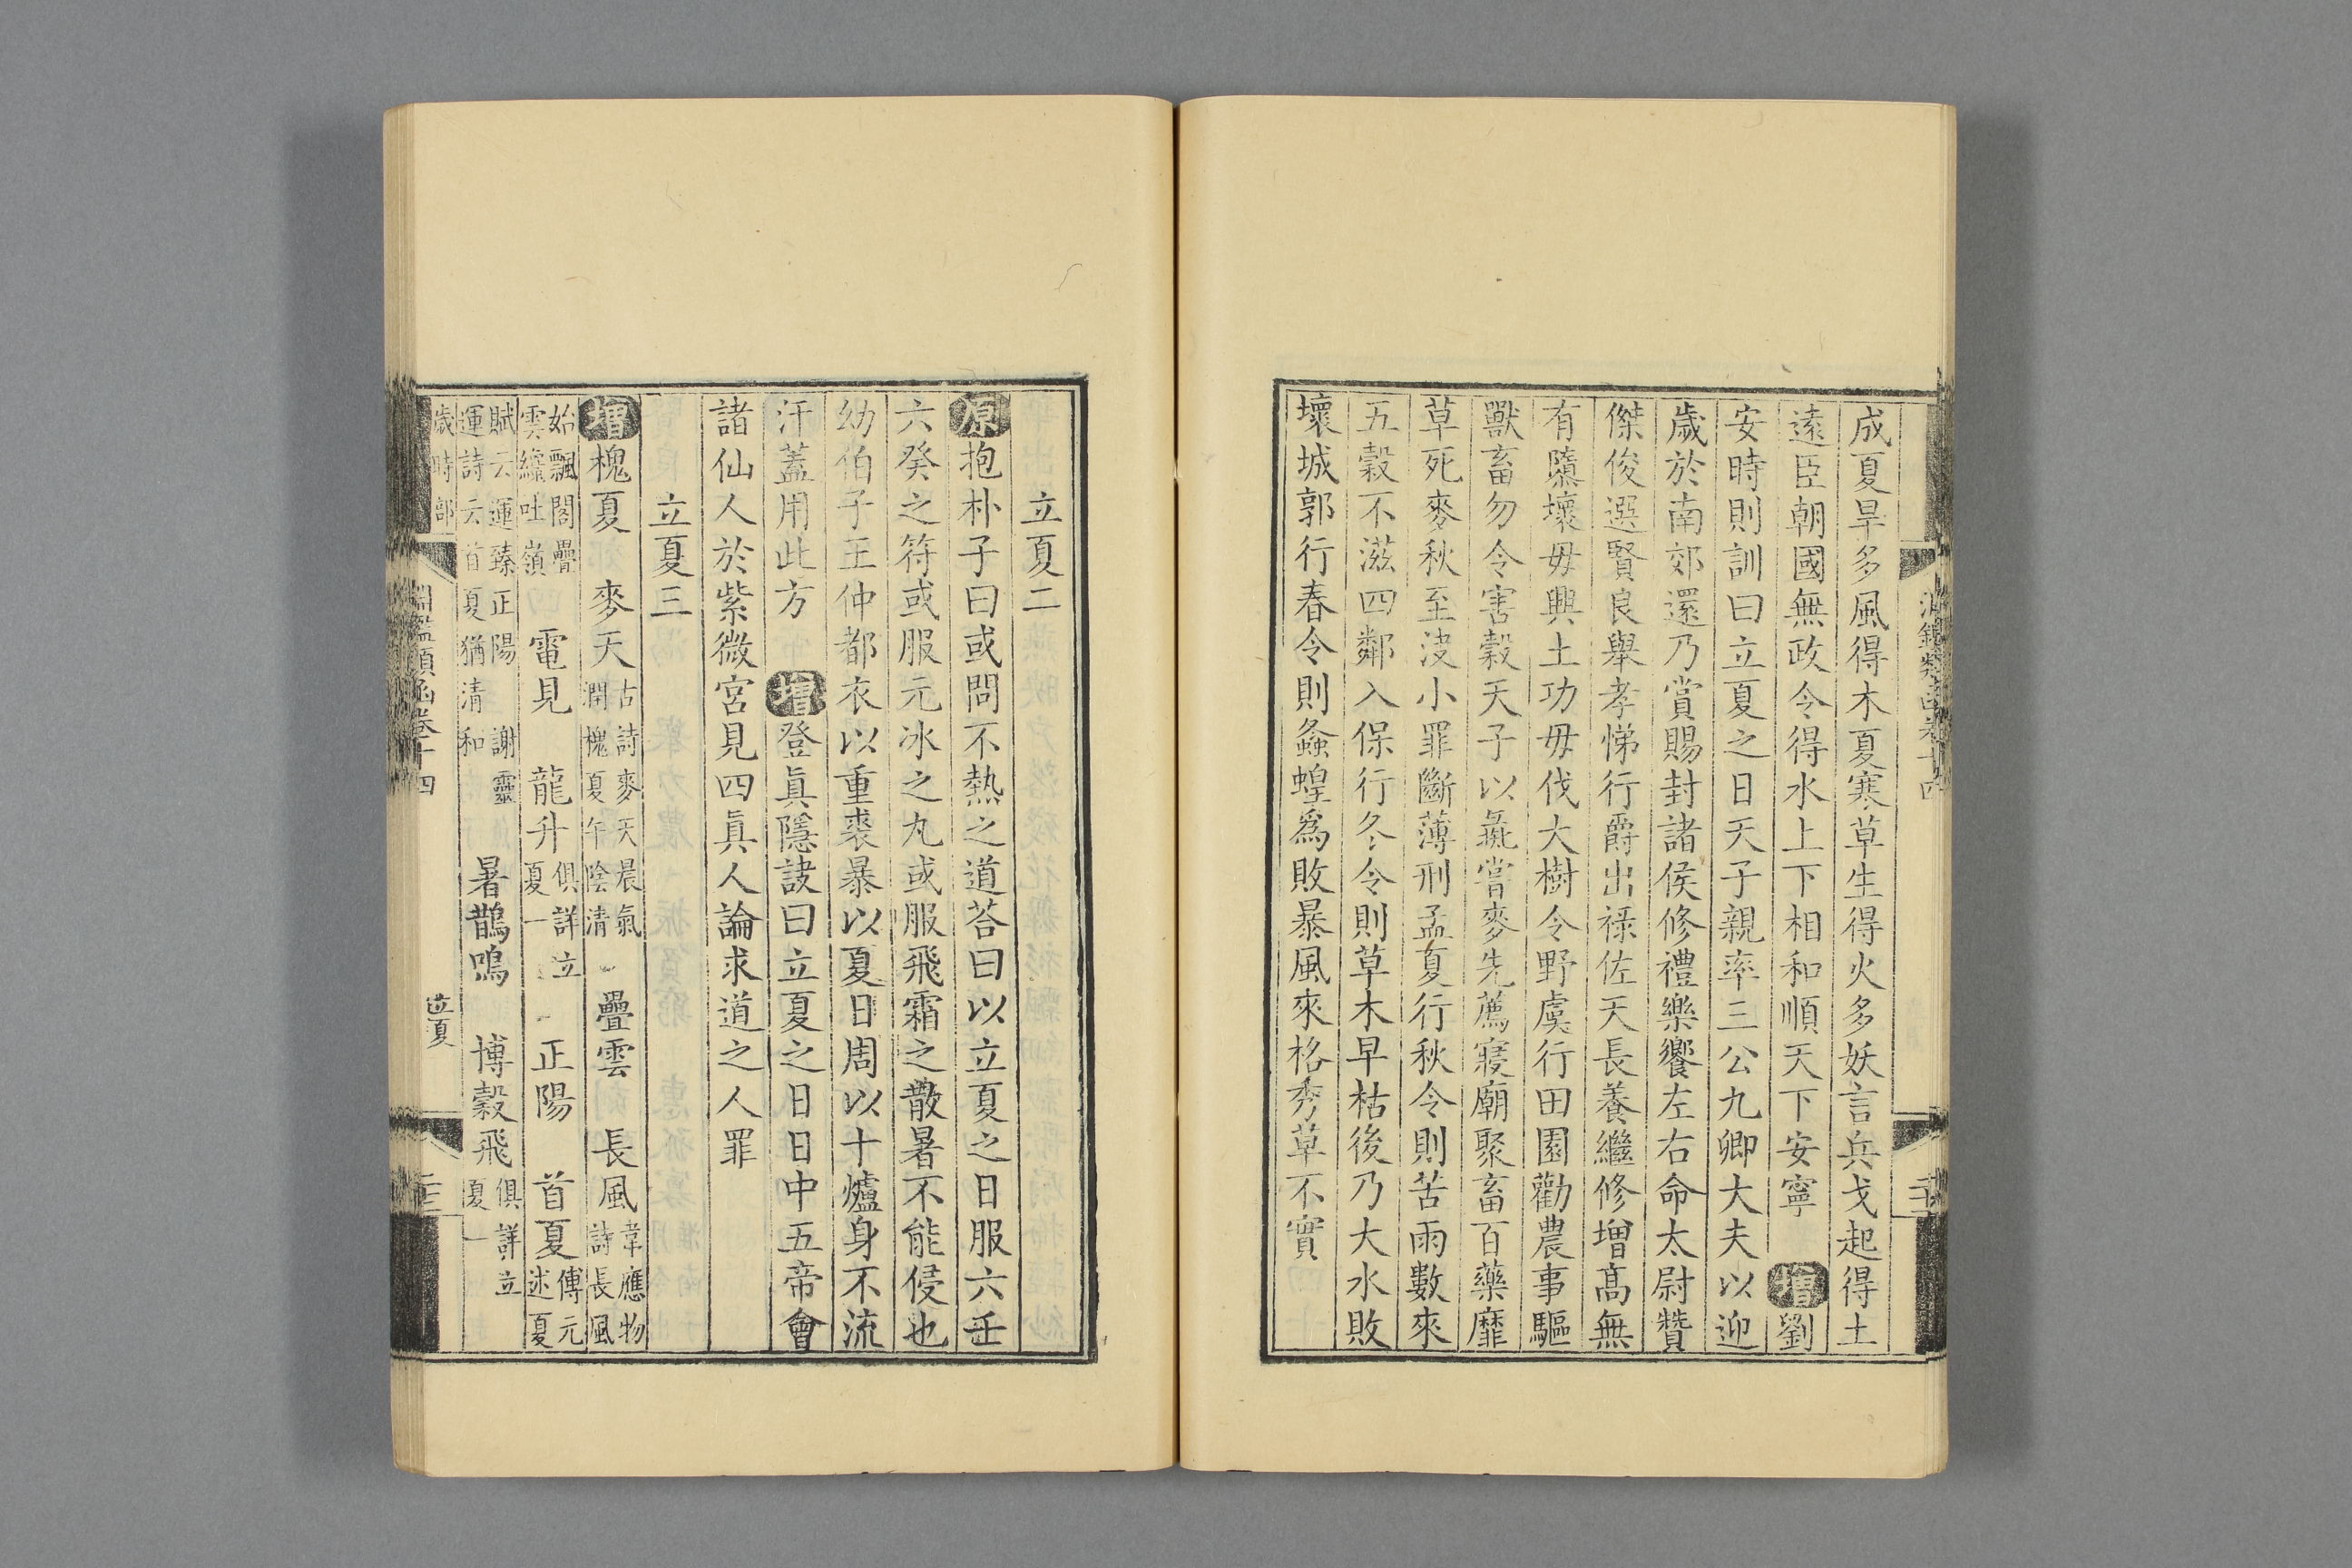 淵鑑類函卷十四
成夏旱多風得木夏寒草生得火多妖言兵戈起得土
遠臣朝國無政令得水上下相和順天下安寧 增劉
安時則訓曰立夏之日天子親率三公九卿大夫以迎
歲於南郊還乃賞賜封諸侯修禮樂饗左右命太尉贊
傑俊選賢良舉孝悌行爵出祿佐天長養繼修增高無
有隳壞毋興土功毋伐大樹令野虞行田園勸農事驅
獸畜勿令害穀天子以彘嘗麥先薦寢廟聚畜百藥靡
草死麥秋至决小罪斷薄刑孟夏行秋令則苦雨數來
五穀不滋四鄰入保行冬令則草木早枯後乃大水敗
壞城郭行春令則螽蝗爲敗暴風來格秀草不實
立夏二
原抱朴子曰或問不熱之道荅曰以立夏之日服六壬
六癸之符或服元冰之丸或服飛霜之散暑不能侵也
幼伯子王仲都衣以重裘暴以夏日周以十爐身不流
汗蓋用此方 增登眞隱訣曰立夏之日日中五帝會
諸仙人於紫微宮見四眞人論求道之人罪
立夏三
增槐夏 麥天 古詩麥天晨氣潤槐夏午陰清 疊雲 長風 韋應物詩長風
始飄閣疊雲纔吐嶺 電見 龍升 俱詳立夏一 正陽 首夏 傅元述夏
賦云運臻正陽 謝靈運詩云首夏猶清和 暑鵲鳴 博穀飛 俱詳立夏一
歲時部
淵鑑類函卷十四
立夏